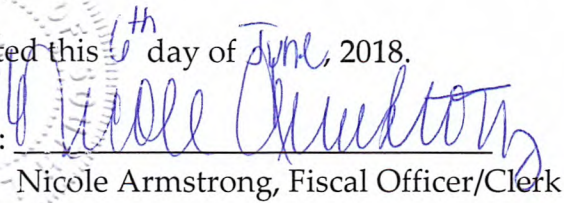 ted this 6th day of June, 2018.
: Nicole Armstrong
Nicole Armstrong, Fiscal Officer/Clerk